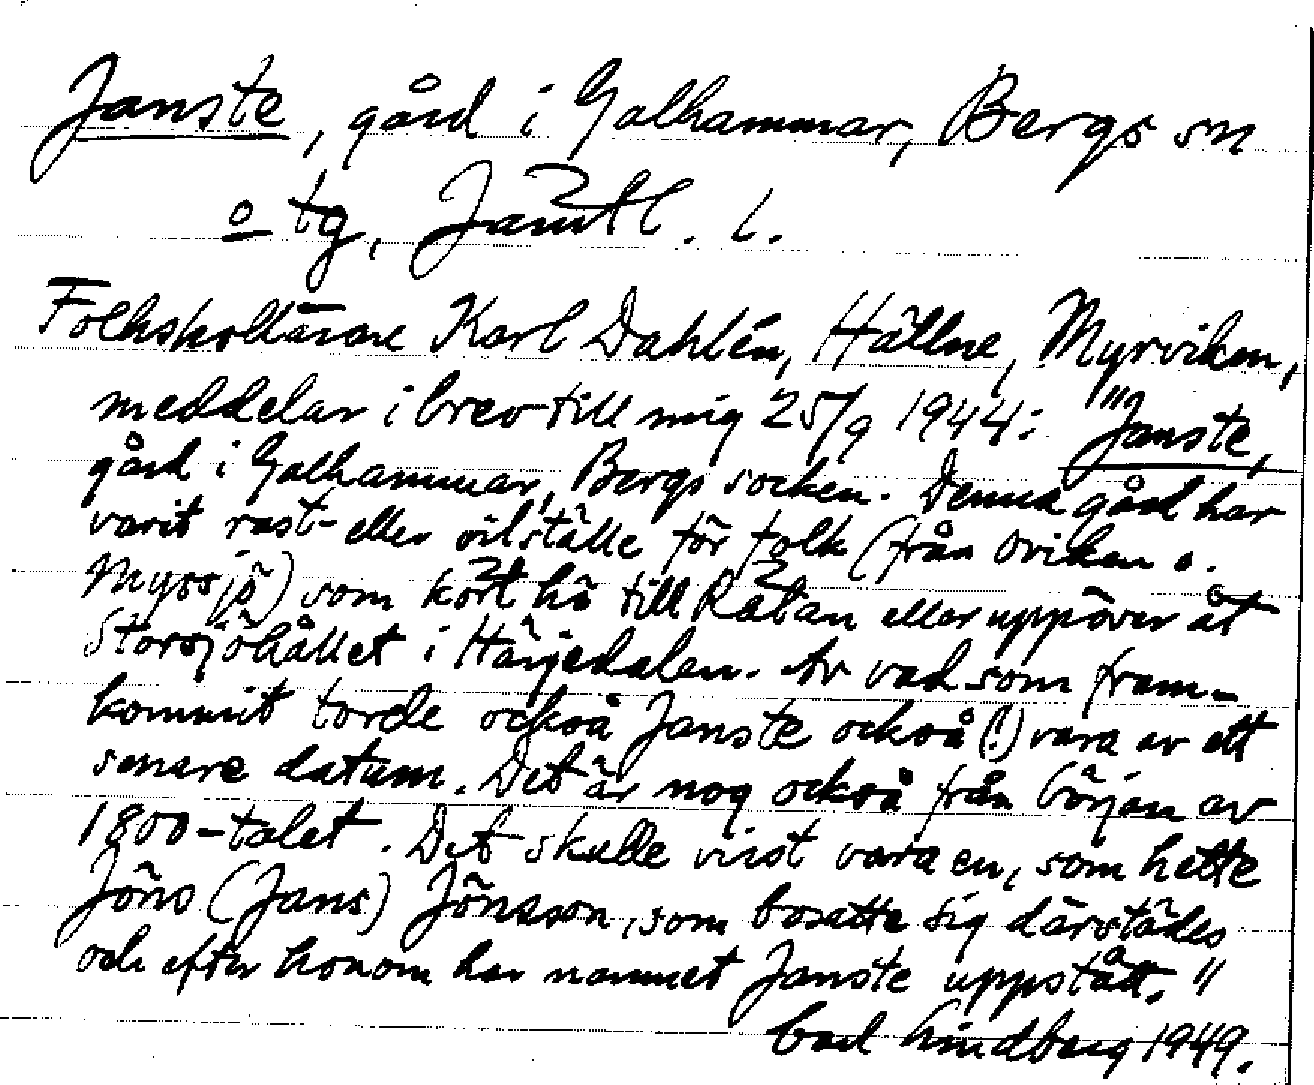 Janste, gård i Galhammar, Bergs sn
o tg, Jämtl. l.
Folkskollärare Karl Dahlén, Hällne, Myrviken,
meddelar i brev till mig 25/9 1944: "Janste,
gård i Galhammar, Bergs socken. Denna gård har
varit rast- eller vilställe för folk (från Oviken o.
Myssjö) som kört hö till Rätan eller uppöver åt
Storsjöhållet i Härjedalen. Av vad som fram-
kommit torde också Janste också (!) vara av ett
senare datum. Det är nog också från början av
1800-talet. Det skulle visst vara en, som hette
Jöns (Jans) Jönsson, som bosatte sig därstädes
och efter honom har namnet Janste uppstått."
Carl Lindberg 1949.